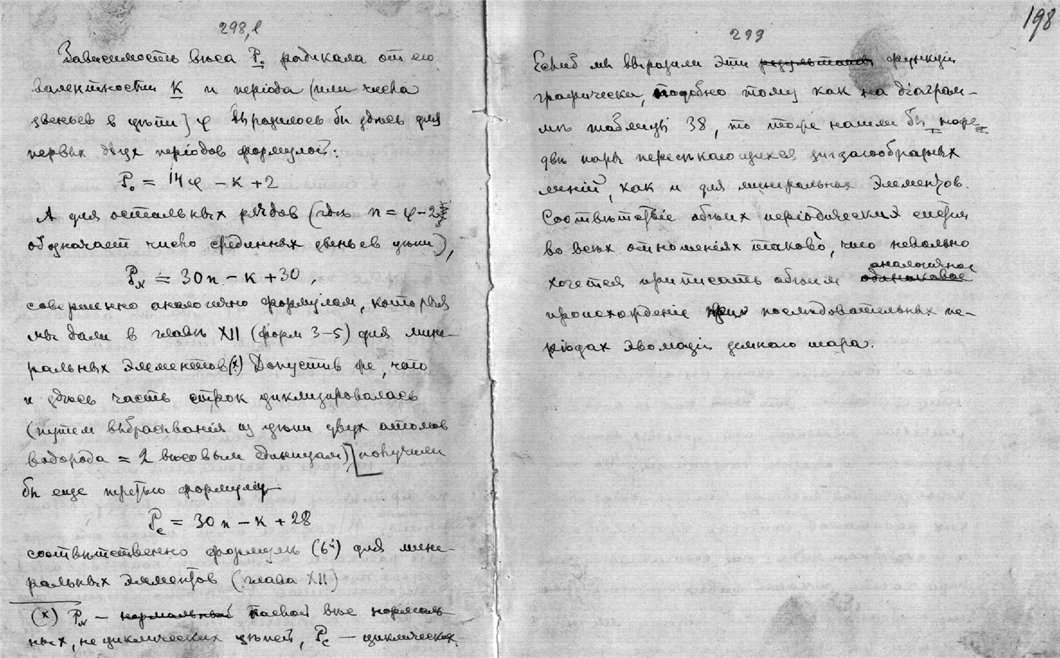 298,б
Зависимость вѣса P₀ радикала отъ его
валентности K и періода (или числа
звеньев в цѣпи) φ выразилось бы здѣсь для
первых двух періодов формулой:
P₀ = 14φ – K + 2
А для остальных рядов (гдѣ n = φ – 2
обозначает число срединных звеньев цѣпи),
P_N = 30n – K + 30,
совершенно аналогично формулам, которыя
мы дали в главѣ XII (форм 3–5) для мине-
ральных элементов(x) Допустив же, что
и здѣсь часть строк циклизировалась
(путем выбрасыванія из цѣпи двух атомов
водорода = 2 вѣсовым единицам), получили
бы еще третью формулу
P_c = 30n – K + 28
соотвѣтственно формулѣ (6) для мине-
ральных элементов (глава XII)
(x) P_N – нормальный паевой вѣс нормаль-
ных, не циклических цѣпей, P_c – циклических.
299
198
Еслиб мы выразили эти результаты функціи
графически, подобно тому как на діаграм-
мѣ таблицы 38, то тоже нашли бы
двѣ пары пересѣкающихся зигзагообразных
линій, как и для минеральных элементов.
Соотвѣтствіе обѣих періодических систем
во всѣх отношеніях таково, что невольно
аналогичное
хочется приписать обѣим одинаковое
происхожденіе при послѣдовательных пе-
ріодах эволюціи земного шара.